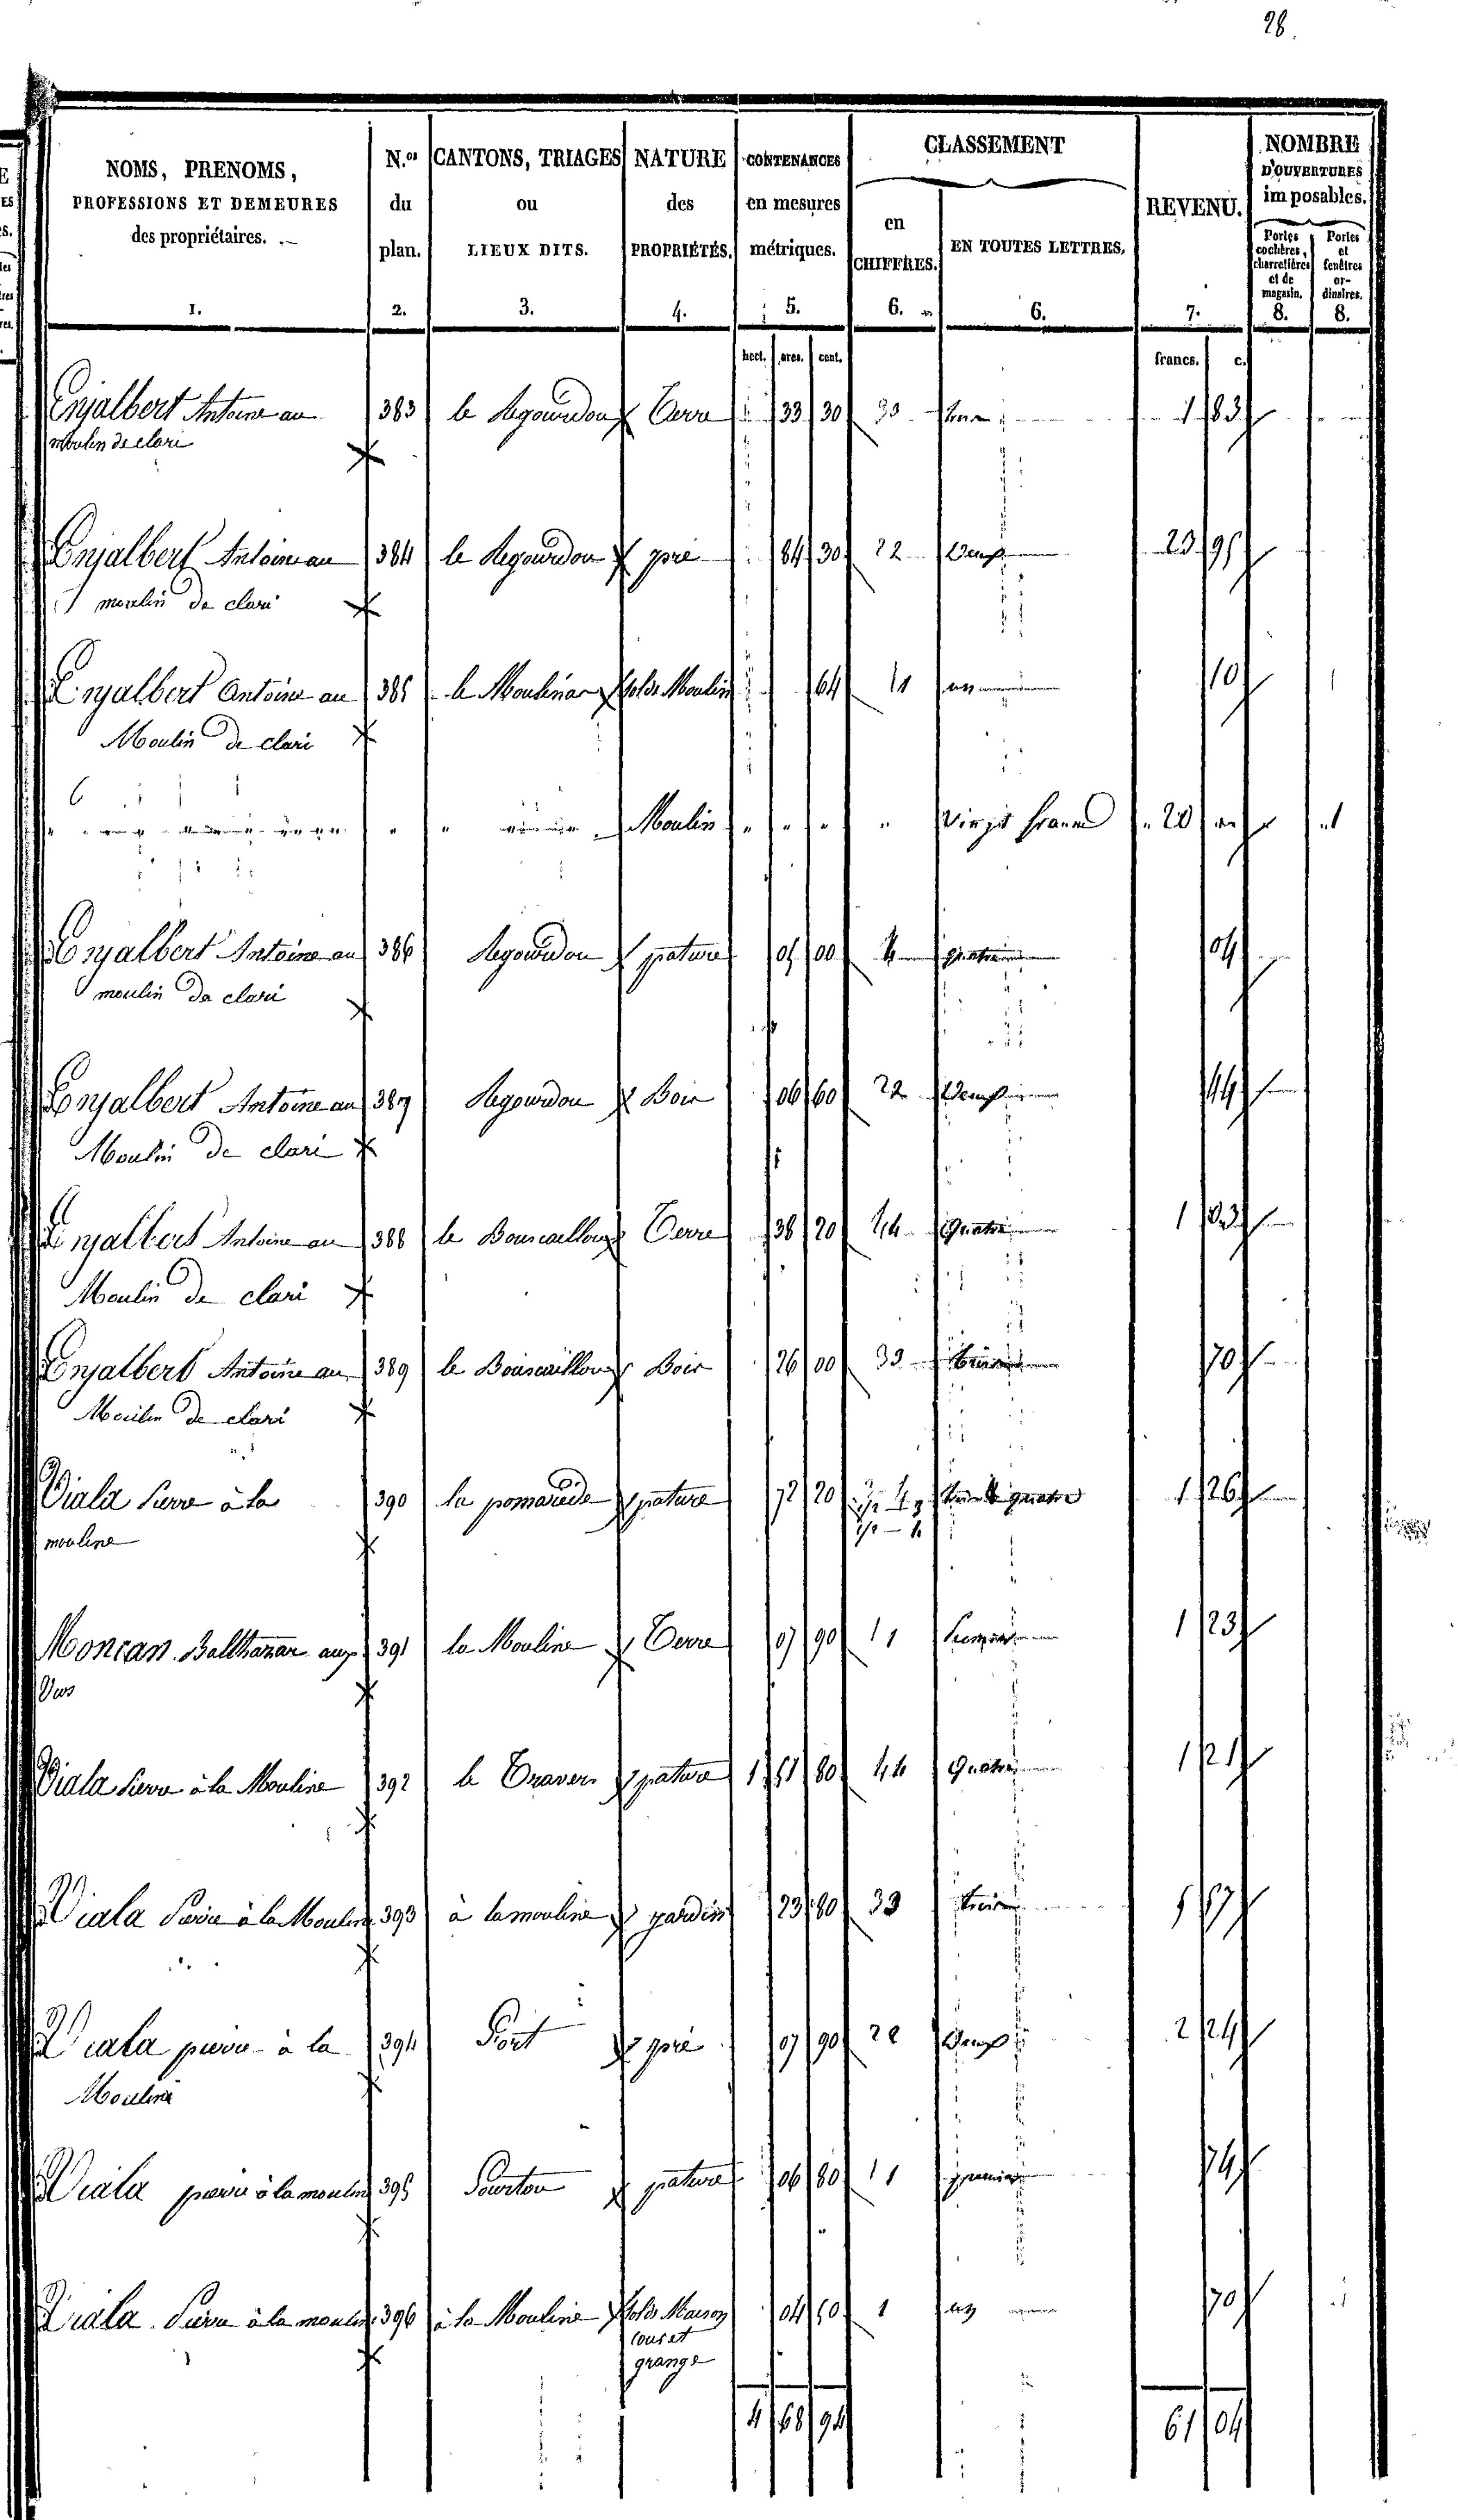 28.
NOMS, PRENOMS, PROFESSIONS ET DEMEURES des propriétaires. 1.
N.os du plan. 2.
CANTONS, TRIAGES ou LIEUX DITS. 3.
NATURE des PROPRIÉTÉS. 4.
CONTENANCES en mesures métriques. 5.
CLASSEMENT
en CHIFFRES. 6.
EN TOUTES LETTRES. 6.
REVENU. 7.
NOMBRE D'OUVERTURES imposables.
Portes cochères, charretières et de magasin. 8.
Portes et fenêtres ordinaires. 8.
hect. ares. cent. francs. c.
Enjalbert Antoine au 383 le Regourdou Terre 33 30 33 1 83
moulin de clari
Enjalbert Antoine au 384 le Regourdou pré 84 30 22 Deux 23 95
moulin de clari
Enjalbert Antoine au 385 le Moulinar sol de Moulin 64 11 un 10
Moulin de clari
" " " Moulin " " " " Vingt francs 20 " 1
Enjalbert Antoine au 386 Regourdou pature 05 00 4 quatre 04
moulin de clari
Enjalbert Antoine au 387 Regourdou Bois 06 60 22 Deux 44
Moulin de clari
Enjalbert Antoine au 388 le Bouscaillou Terre 38 20 44 Quatre 1
Moulin de clari
Enjalbert Antoine au 389 le Bouscaillou Bois 26 00 33 trois 70
Moulin de clari
Viala Pierre à la 390 la pomarède pature 72 20 quatre 1 26
mouline
Moncan Balthazar aux 391 la Mouline Terre 07 90 11 Premier 1 23
Viala Pierre à la Mouline 392 le Travers pature 1 51 80 44 Quatre 1 21
Viala Pierre à la Mouline 393 à la mouline jardin 23 80 33 trois
Viala pierre à la 394 Port pré 07 90 22 Deux 2 24
Mouline
Viala pierre à la mouline 395 pature 06 80 11 premier 74
Viala Pierre à la mouline 396 à la Mouline sol de Maison 04 50 1 un 70
cour et
grange
4 68 94 61 04